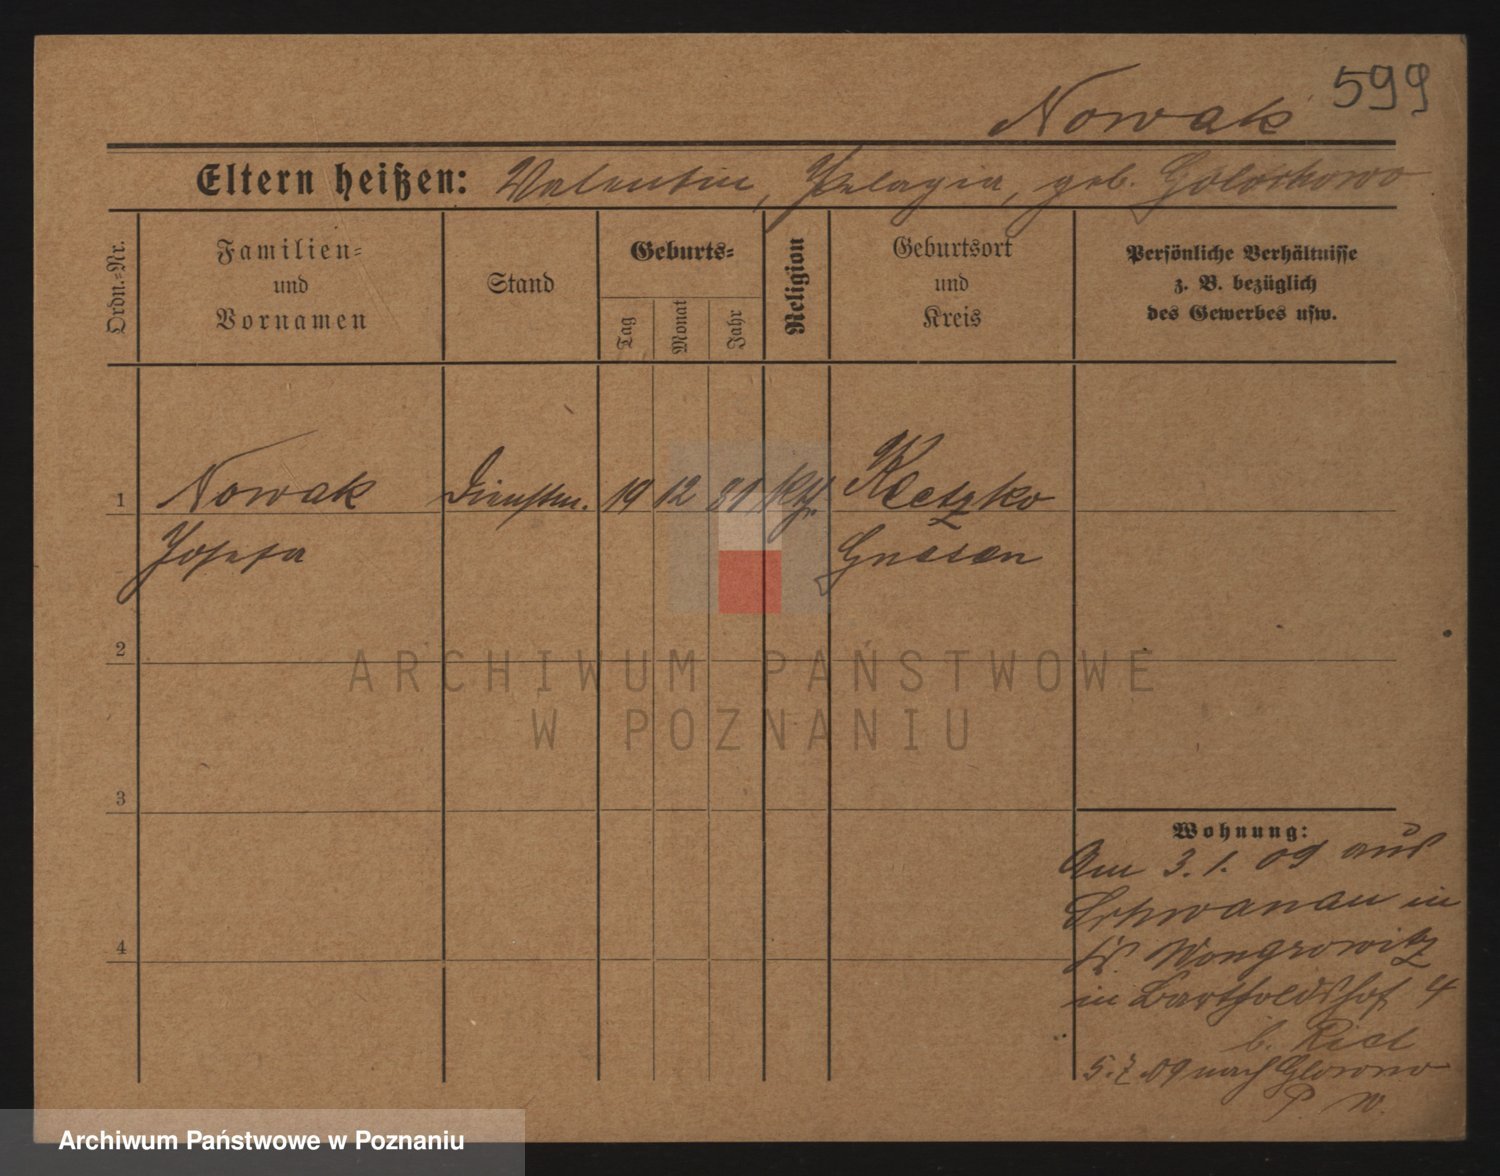 Nowak 599
Eltern heißen: Valentin, Pelagia, geb.
Ordn.=Nr.
Familien=
und
Vornamen
Stand
Geburts=
Tag
Monat
Jahr
Religion
Geburtsort
und
Kreis
Persönliche Verhältnisse
z. B. bezüglich
des Gewerbes usw.
1 Nowak 19 12 Kletzko
Josefa Gnesen
2
3
4
Wohnung:
Am 3. 1. 09 aus
in
Wongrowitz
in Bartholdshof 4
b.
09 nach Glowno
P. W.
ARCHIWUM PAŃSTWOWE
W POZNANIU
Archiwum Państwowe w Poznaniu